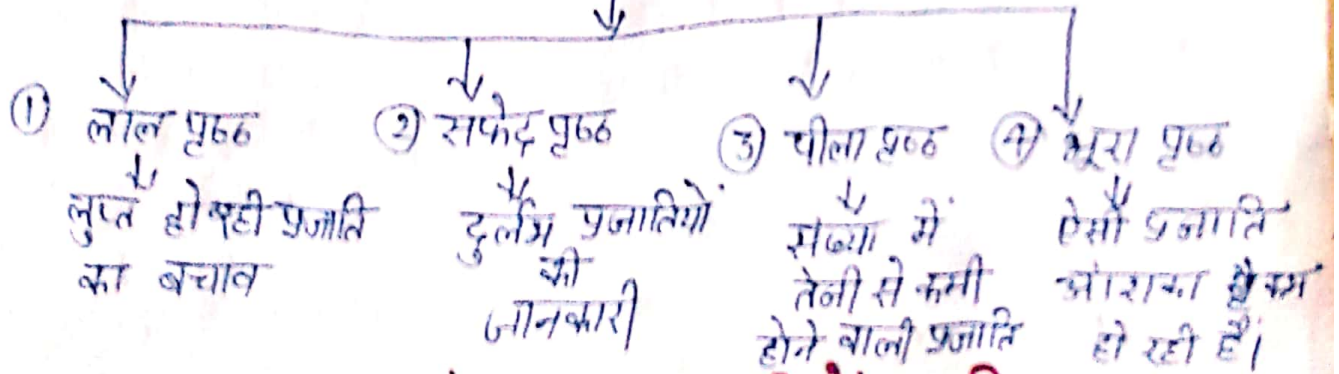 ① लाल पृष्ठ
लुप्त हो रही प्रजाति
का बचाव
② सफेद पृष्ठ
दुर्लभ प्रजातियों
की
जानकारी
③ पीला पृष्ठ
संख्या में
तेजी से कमी
होने वाली प्रजाति
④ भूरा पृष्ठ
ऐसी प्रजाति
कम
हो रही हैं।